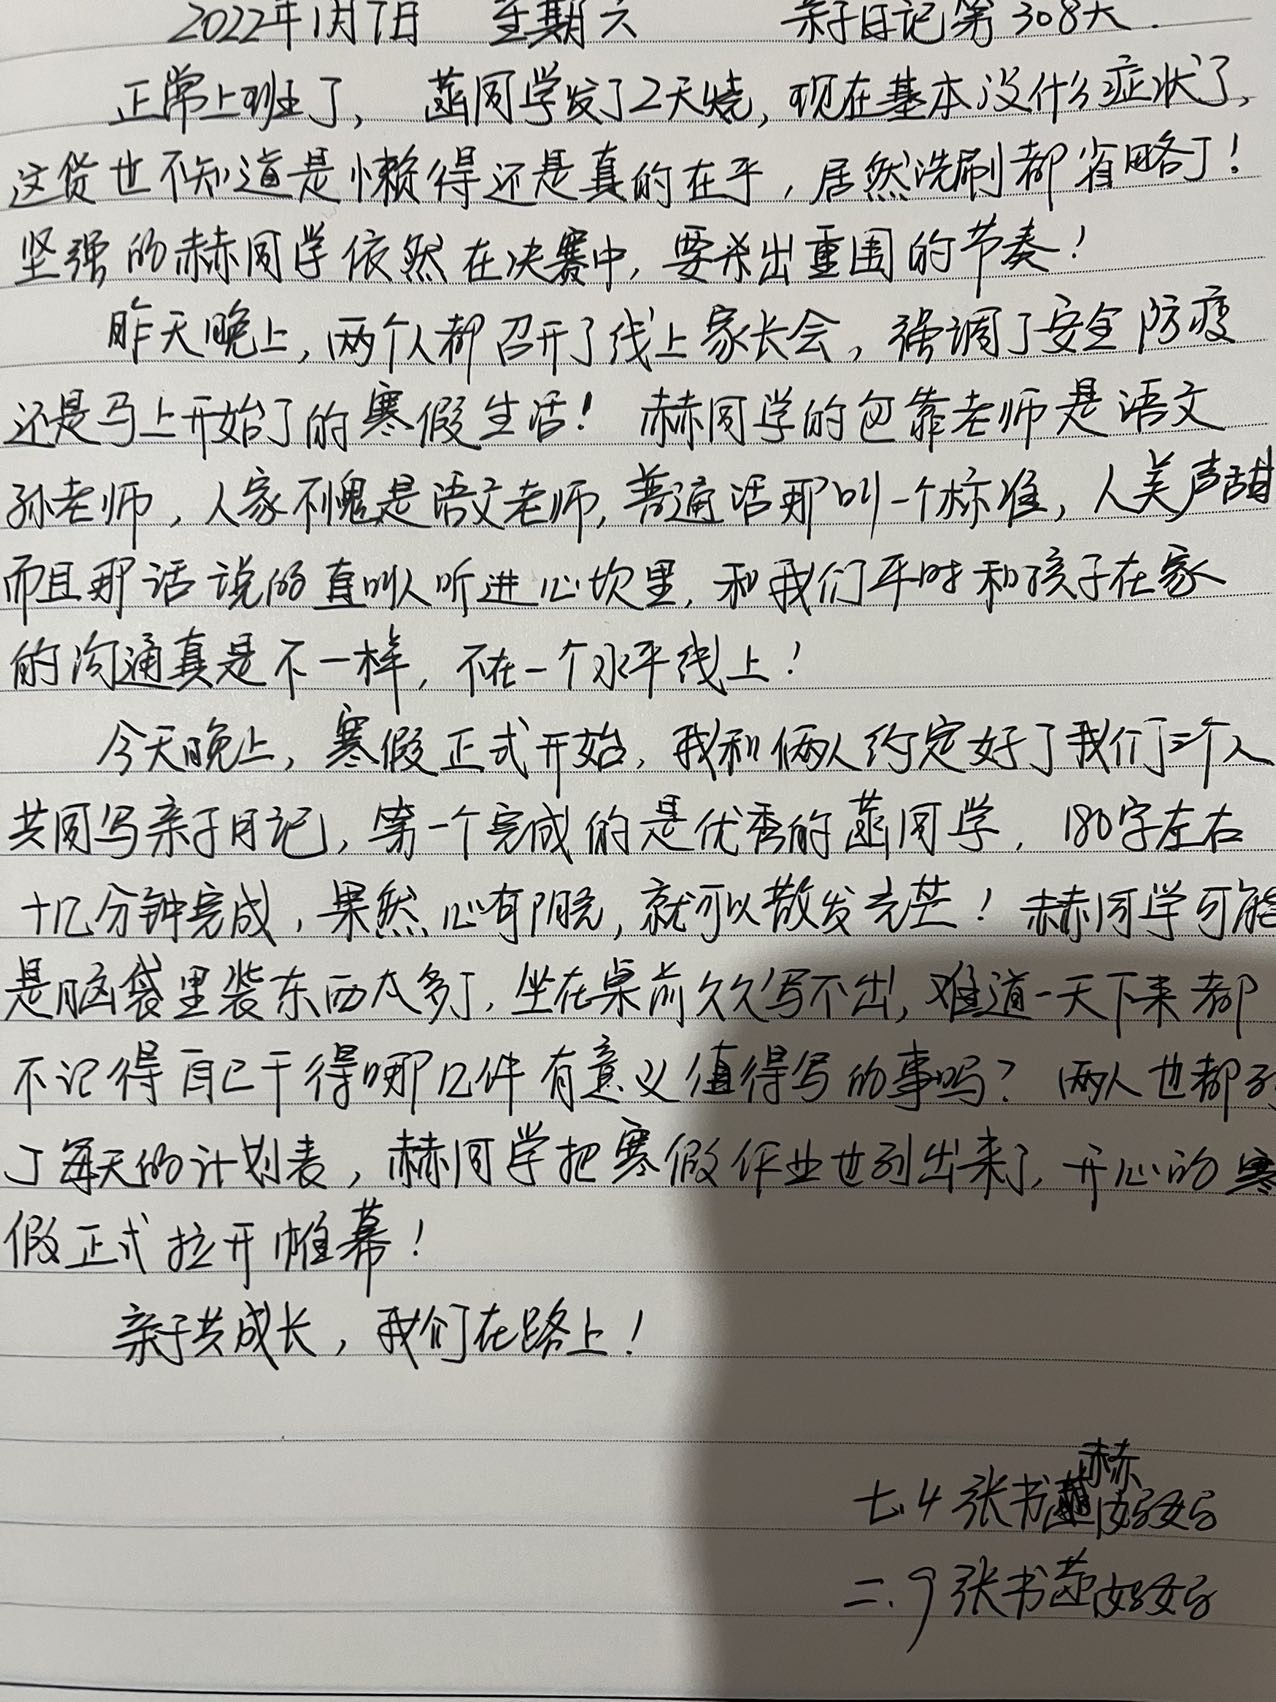 2022年1月7日 星期六 亲子日记第308天.
正常上班了，菡同学发了2天烧，现在基本没什么症状了，
这货也不知道是懒得还是真的在乎，居然洗刷都省略了！
坚强的赫同学依然在决赛中，要杀出重围的节奏！
昨天晚上，两个人都召开了线上家长会，强调了安全防疫
还是马上开始了的寒假生活！赫同学的包靠老师是语文
孙老师，人家不愧是语文老师，普通话那叫一个标准，人美声甜
而且那话说的直叫人听进心坎里，和我们平时和孩子在家
的沟通真是不一样，不在一个水平线上！
今天晚上，寒假正式开始，我和俩人约定好了我们三个人
共同写亲子日记，第一个完成的是优秀的菡同学，180字左右
十几分钟完成，果然心有阳光，就可以散发光芒！赫同学可能
是脑袋里装东西太多了，坐在桌前久久写不出，难道一天下来都
不记得自己干得哪几件有意义值得写的事吗？两人也都列
了每天的计划表，赫同学把寒假作业也列出来了，开心的寒
假正式拉开帷幕！
亲子共成长，我们在路上！
七.4 张书赫妈妈
二.9 张书菡妈妈